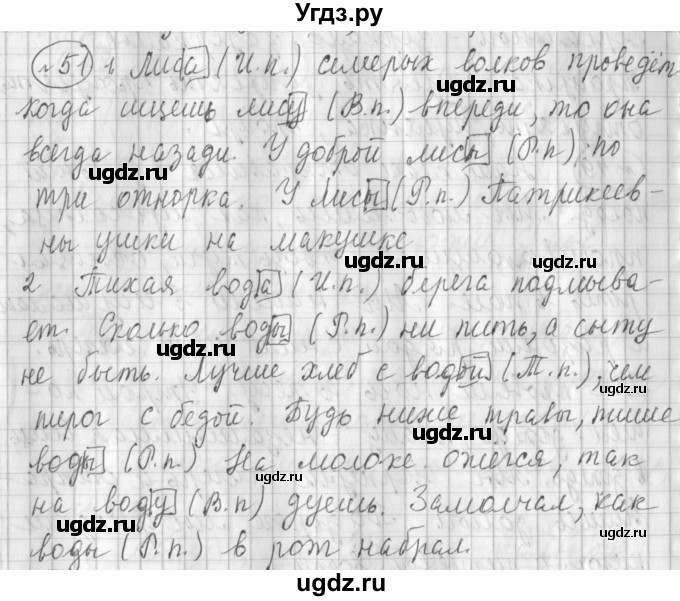 Угдз.ру
№51 1. Лиса (И.п.) семерых волков проведёт
когда ищешь лису (В.п.) впереди, то она
всегда назади. У доброй лисы (Р.п.) по
три отнорка. У Лисы (Р.п.) Патрикеев-
ны ушки на макушке
2 Тихая вода (И.п.) берега подмыва-
ет. Сколько воды (Р.п.) ни пить, а сыту
не быть. Лучше хлеб с водой (Т.п.), чем
пирог с бедой. Будь ниже травы, тише
воды (Р.п.) На молоке ожегся, так
на воду (В.п) дуешь. Замолчал, как
воды (Р.п.) в рот набрал.
ugdz.ru